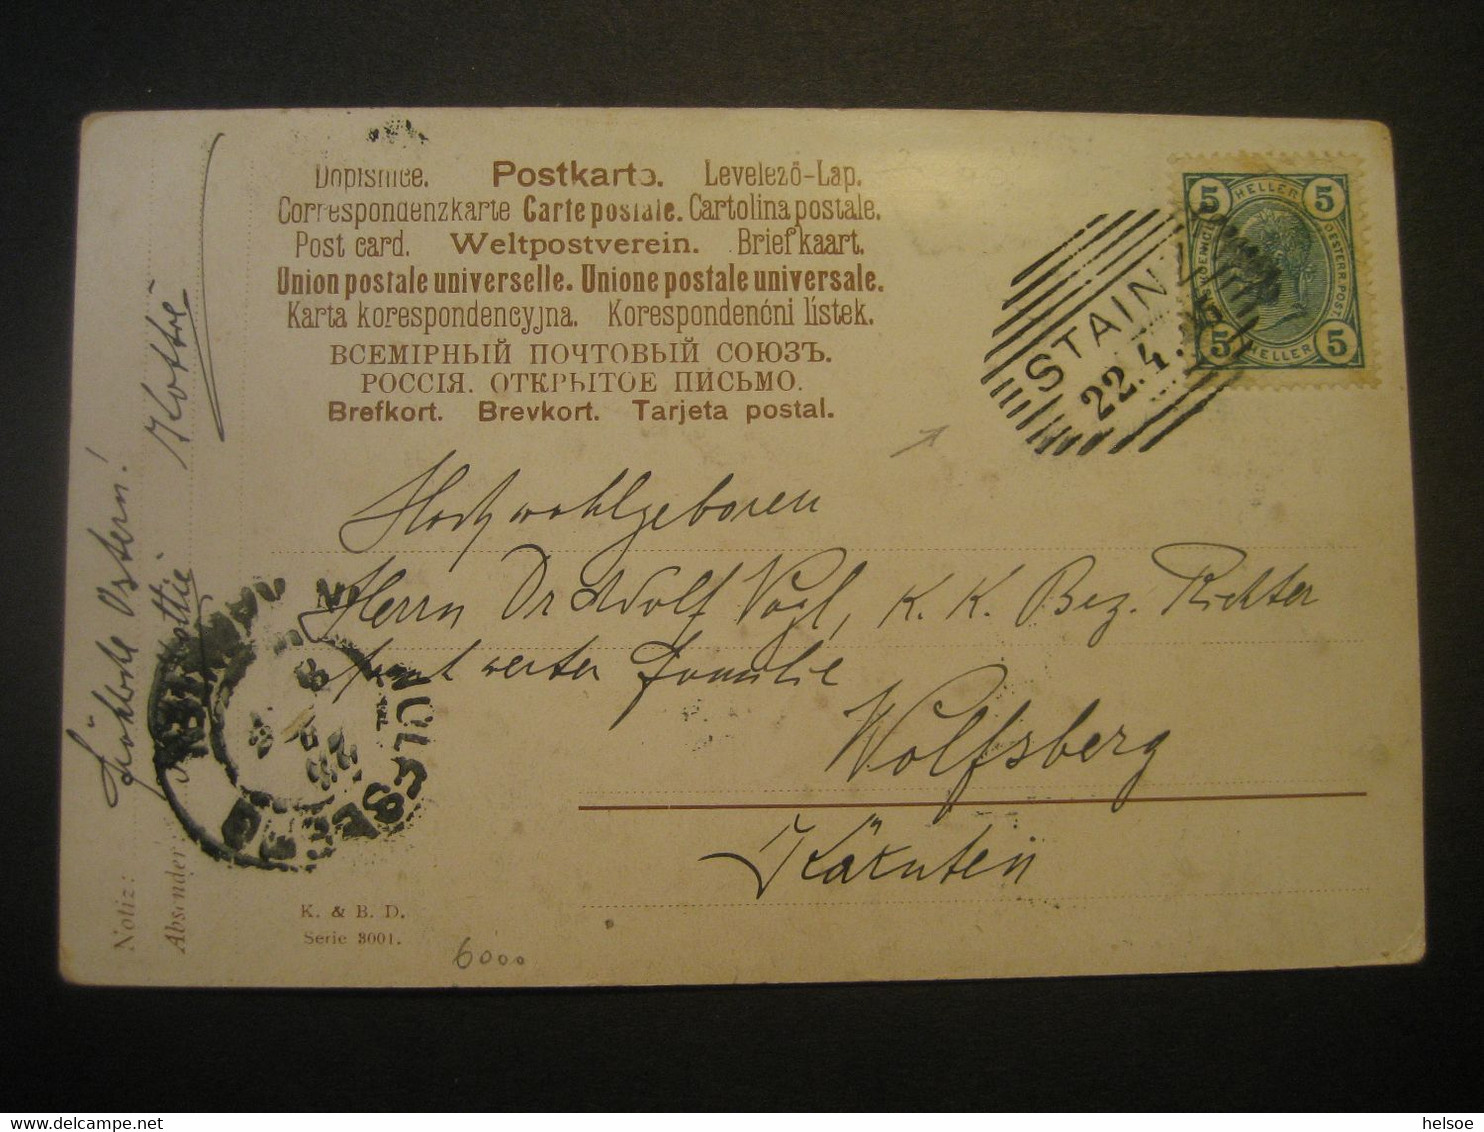 Dopisnice. Postkarte. Levelező-Lap.
Correspondenzkarte Carte postale. Cartolina postale.
Post card. Weltpostverein. Briefkaart.
Union postale universelle. Unione postale universale.
Karta korespondencyjna. Korespondenčni lístek.
ВСЕМІРНЫЙ ПОЧТОВЫЙ СОЮЗЪ.
РОССІЯ. ОТКРЫТОЕ ПИСЬМО.
Brefkort. Brevkort. Tarjeta postal.
5 HELLER 5
OESTERR. POST
5 HELLER 5
STAINZ
22.4.
Hochwohlgeboren
Herrn Dr Adolf Vogl, K. K. Bez. Richter
samt werter Familie
Wolfsberg
Kärnten
Fröhliche Ostern!
Notiz:
Absender:
K. & B. D.
Serie 3001.
6000
helsoe